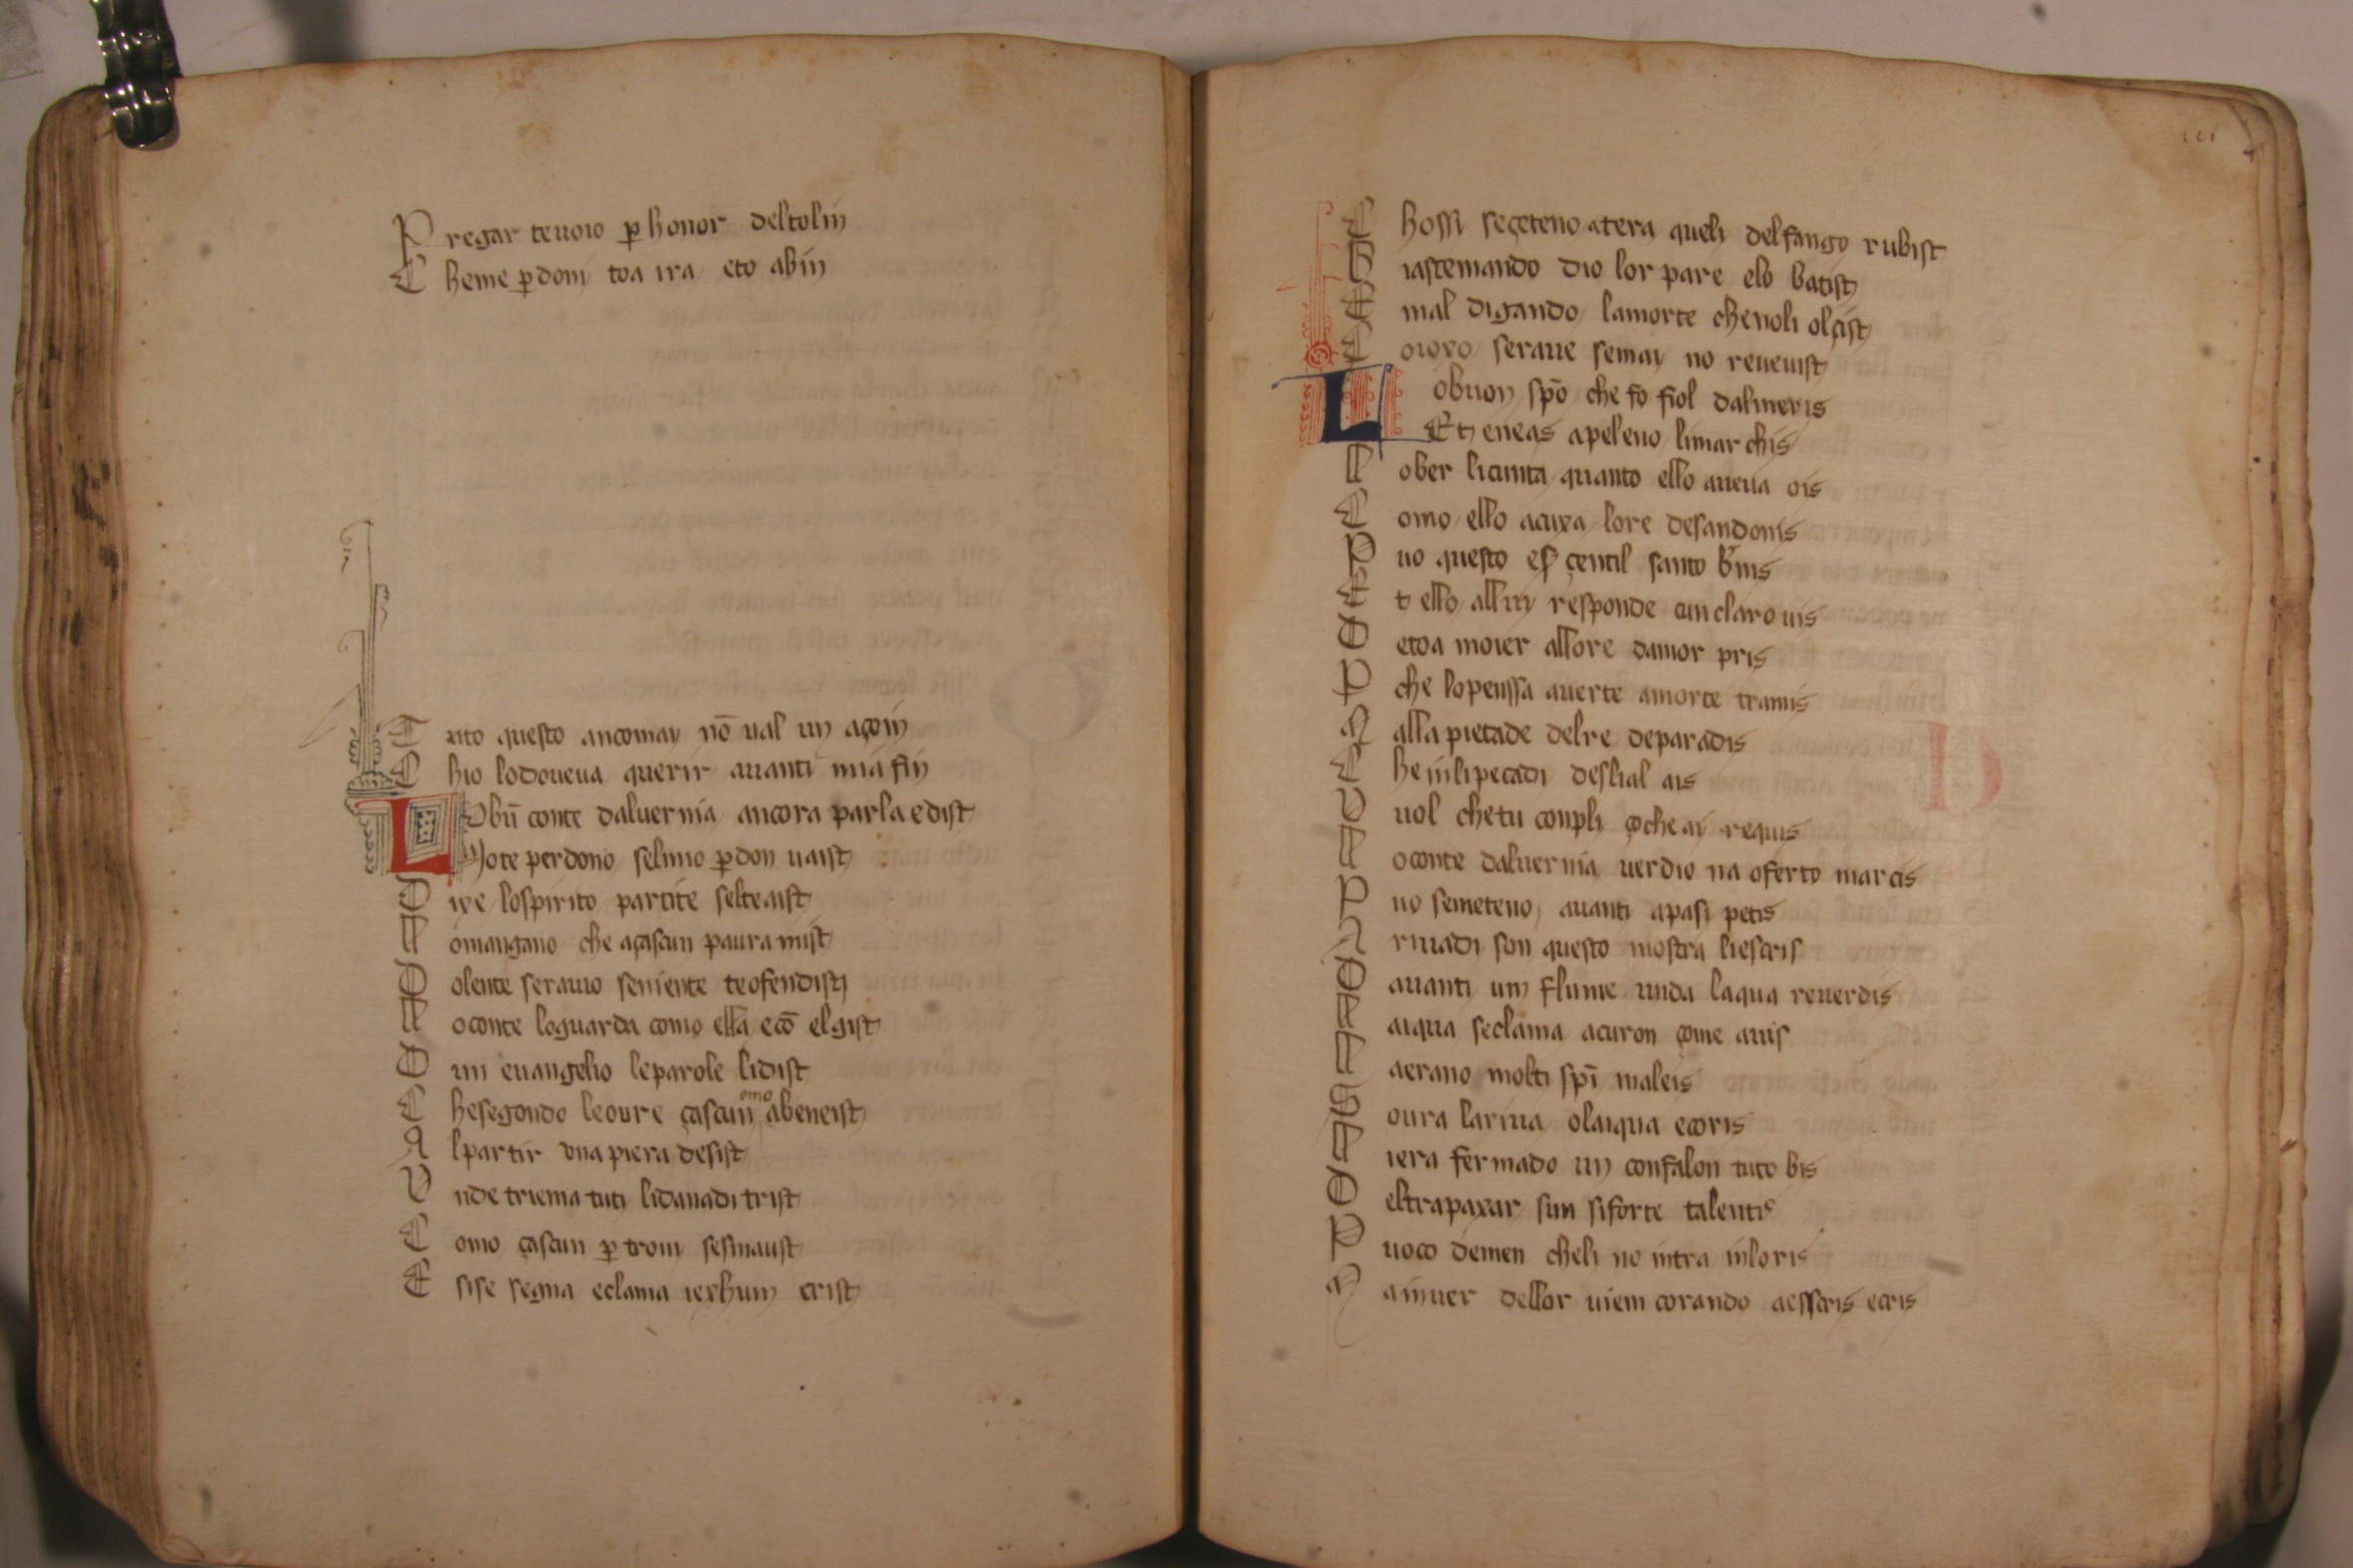 Pregar te uoio p honor del tolin
Cheme pdoni toa ira eto abin
Tuto questo ancomay nō ual un açoin
Chio lodoueua querir auanti mia fin
Lobū conte daluernia ancora parla edist
Yote perdono selmio pdon uaist
Dire lospirito partite selteaist
Lomangano che açascun paura mist
Dolente serauio seniente teofendist
Loconte loguarda como ella ecō elgist
Dun euangelio leparole lidist
Chesegondo leoure çascun omo abeneist
Alpartir una piera desist
Unde triema tuti lidanadi trist
Como çascun p troin sesmauist
Esise segna eclama iexhum crist
101
Chossi seçeteno atera queli delfango rubist
Biastemando dio lor pare elo batist
Emal digando lamorte chenoli olcist
Coioxo seraue semay no reueuist
Lo buon spō che fo fiol dalmeris
Et eneas apeleno li marchis
Lober licunta quanto ello aueua ois
Como ello acuxa lore desandonis
Puo questo esser çentil santo bnis
Et ello allui responde cun claro uis
Detoa moier allore damor pris
Pche lopenssa auerte amorte tramis
Nalla pietade delre deparadis
Che inlipecadi deslial ais
Uuol chetu conpli ço che ay requis
Loconte daluernia uerdio na oferto marcis
Puo semeteno auanti apasi petis
Ariuadi son questo mostra liescris
Dauanti un flume unda laqua reuerdis
Laiqua seclama acuron çome auis
Laerano molti spī maleis
Soura lariua olaiqua ecoris
Liera fermado un confalon tuto bis
Deltrapaxar sun siforte talentis
Puoco demen cheli no intra inloris
Ainuer dellor uiem corando aesscris ecris